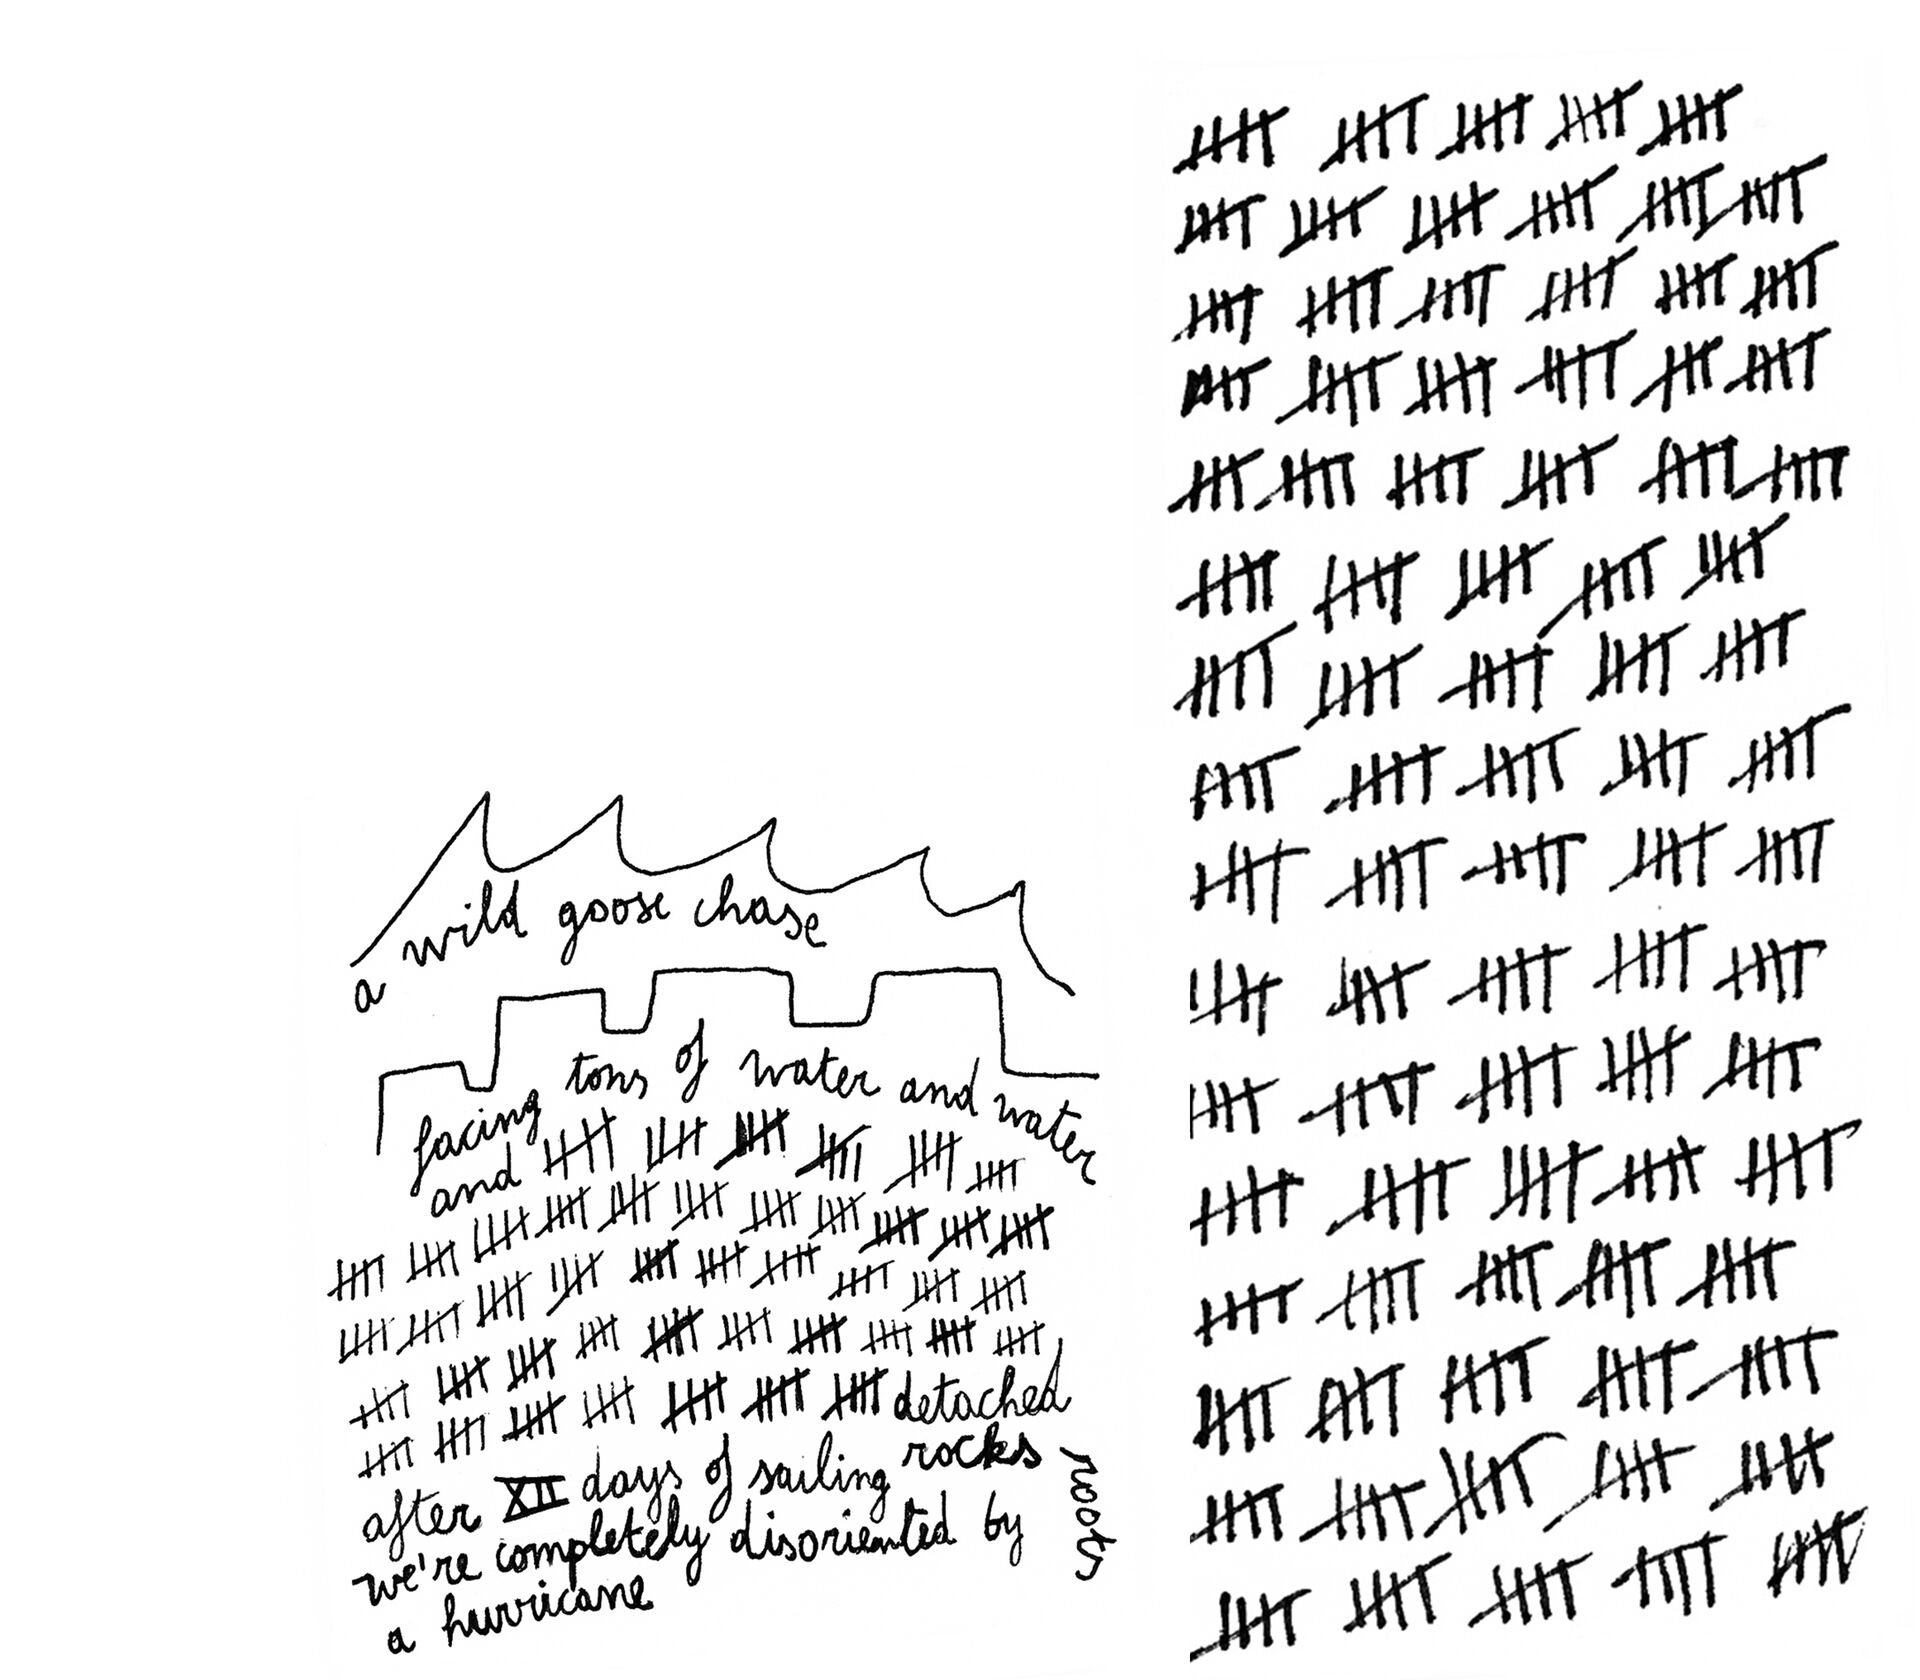 a wild goose chase
facing tons of water and water
and
detached
rocks
roots
after XII days of sailing
we're completely disoriented by
a hurricane